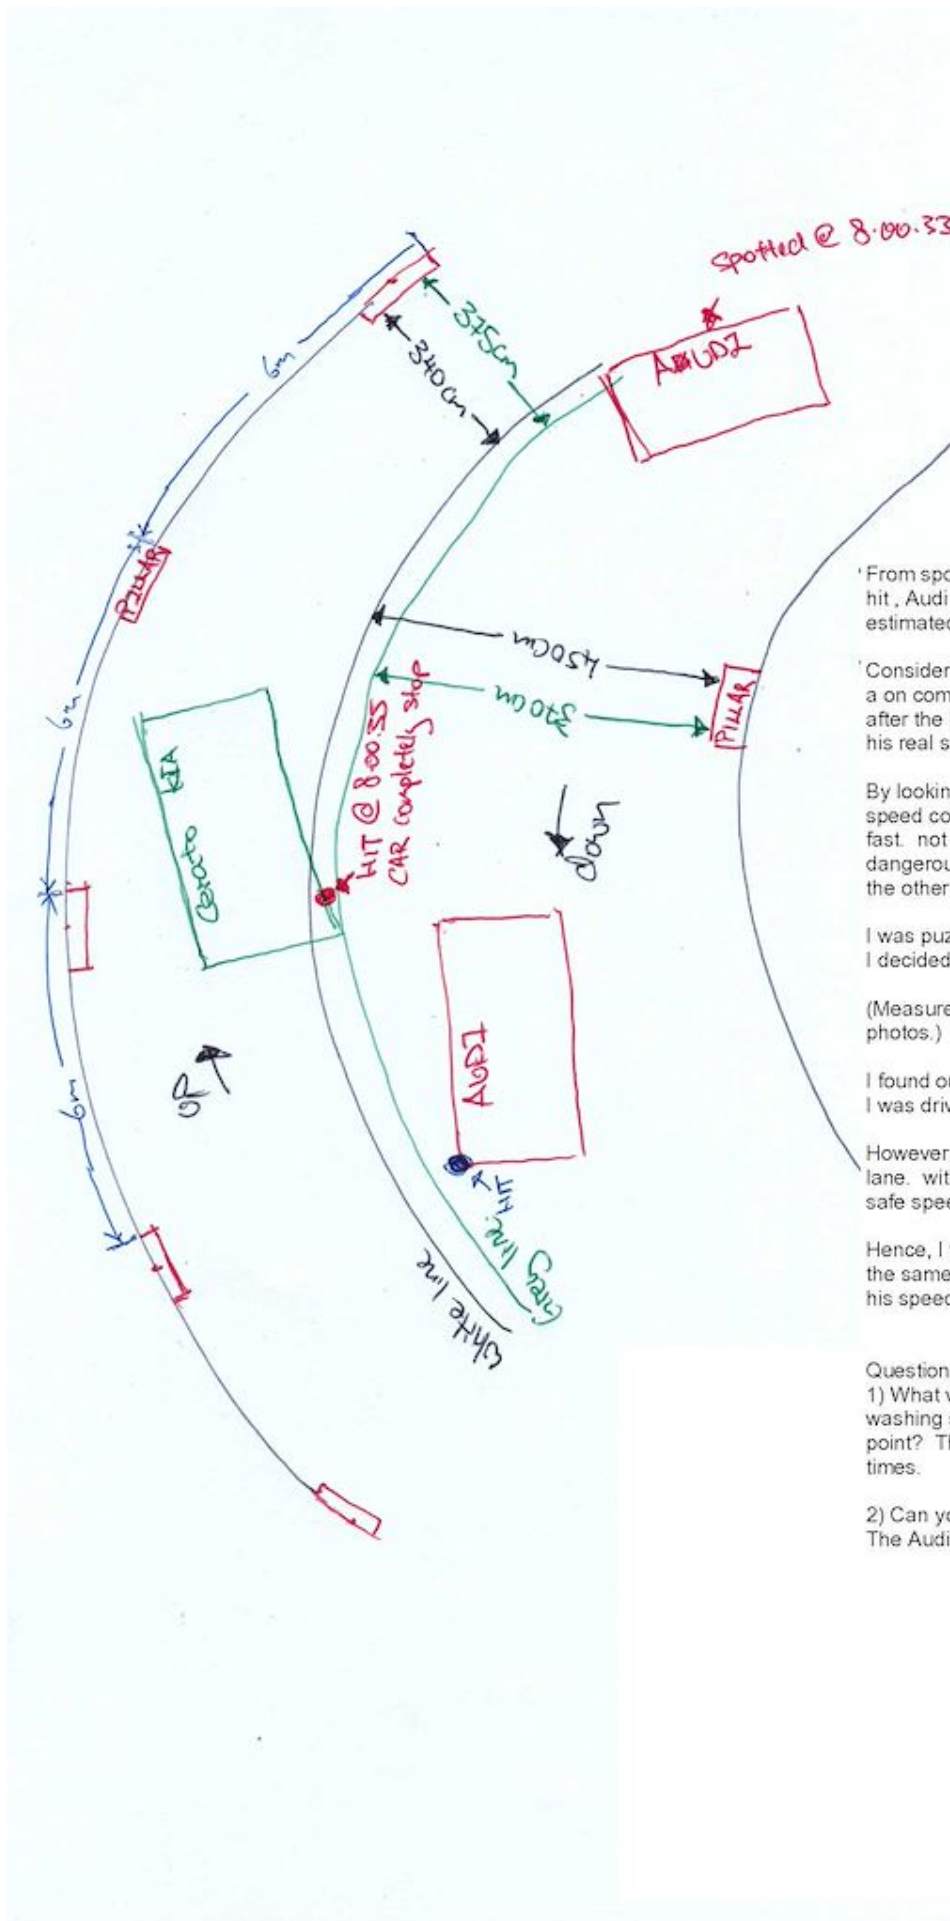 Spotted @ 8.00.33
AUDI
375cm
340cm
6m
PILLAR
450cm
370cm
PILLAR
6m
KIA
Cerato
HIT @ 8.00.55
CAR completely stop
Down
AUDI
UP
6m
HIT
Grey line
White line
From spo
hit , Audi
estimated
Consider
a on com
after the
his real s
By lookin
speed co
fast. not
dangerou
the other
I was puz
I decided
(Measure
photos.)
I found o
I was driv
However
lane. wit
safe spee
Hence, I
the same
his speed
Question
1) What
washing
point? Th
times.
2) Can yo
The Audi